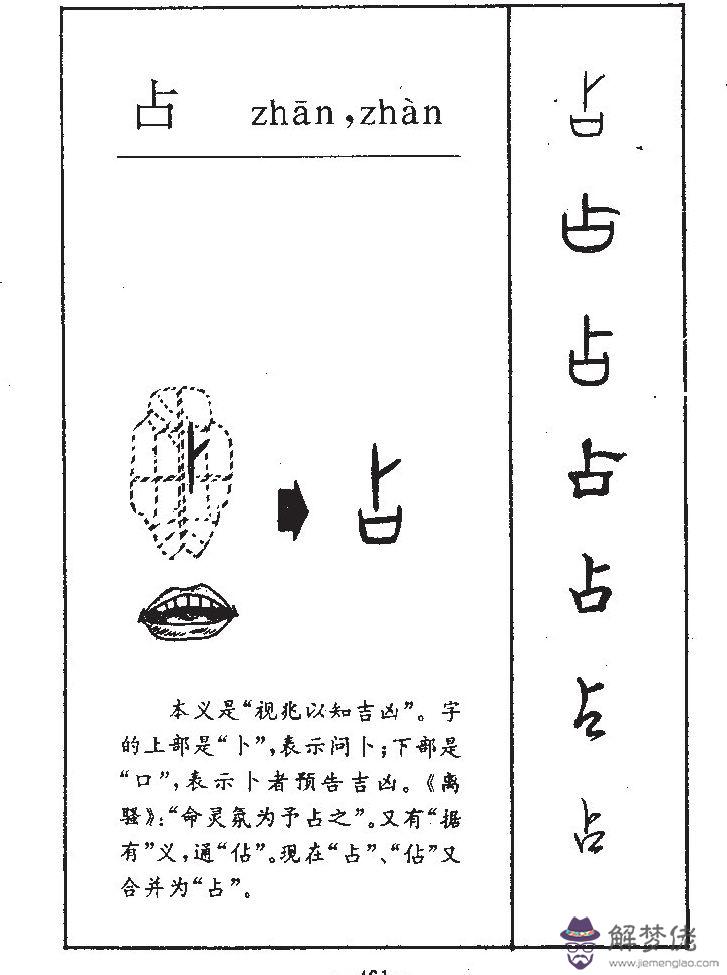 占 zhān,zhàn
本义是“视兆以知吉凶”。字
的上部是“卜”,表示问卜;下部是
“口”,表示卜者预告吉凶。《离
骚》:“命灵氛为予占之”。又有“据
有”义,通“佔”。现在“占”、“佔”又
合并为“占”。
占
占
占
占
占
占
占
占
解梦佬
www.jiemenglao.com